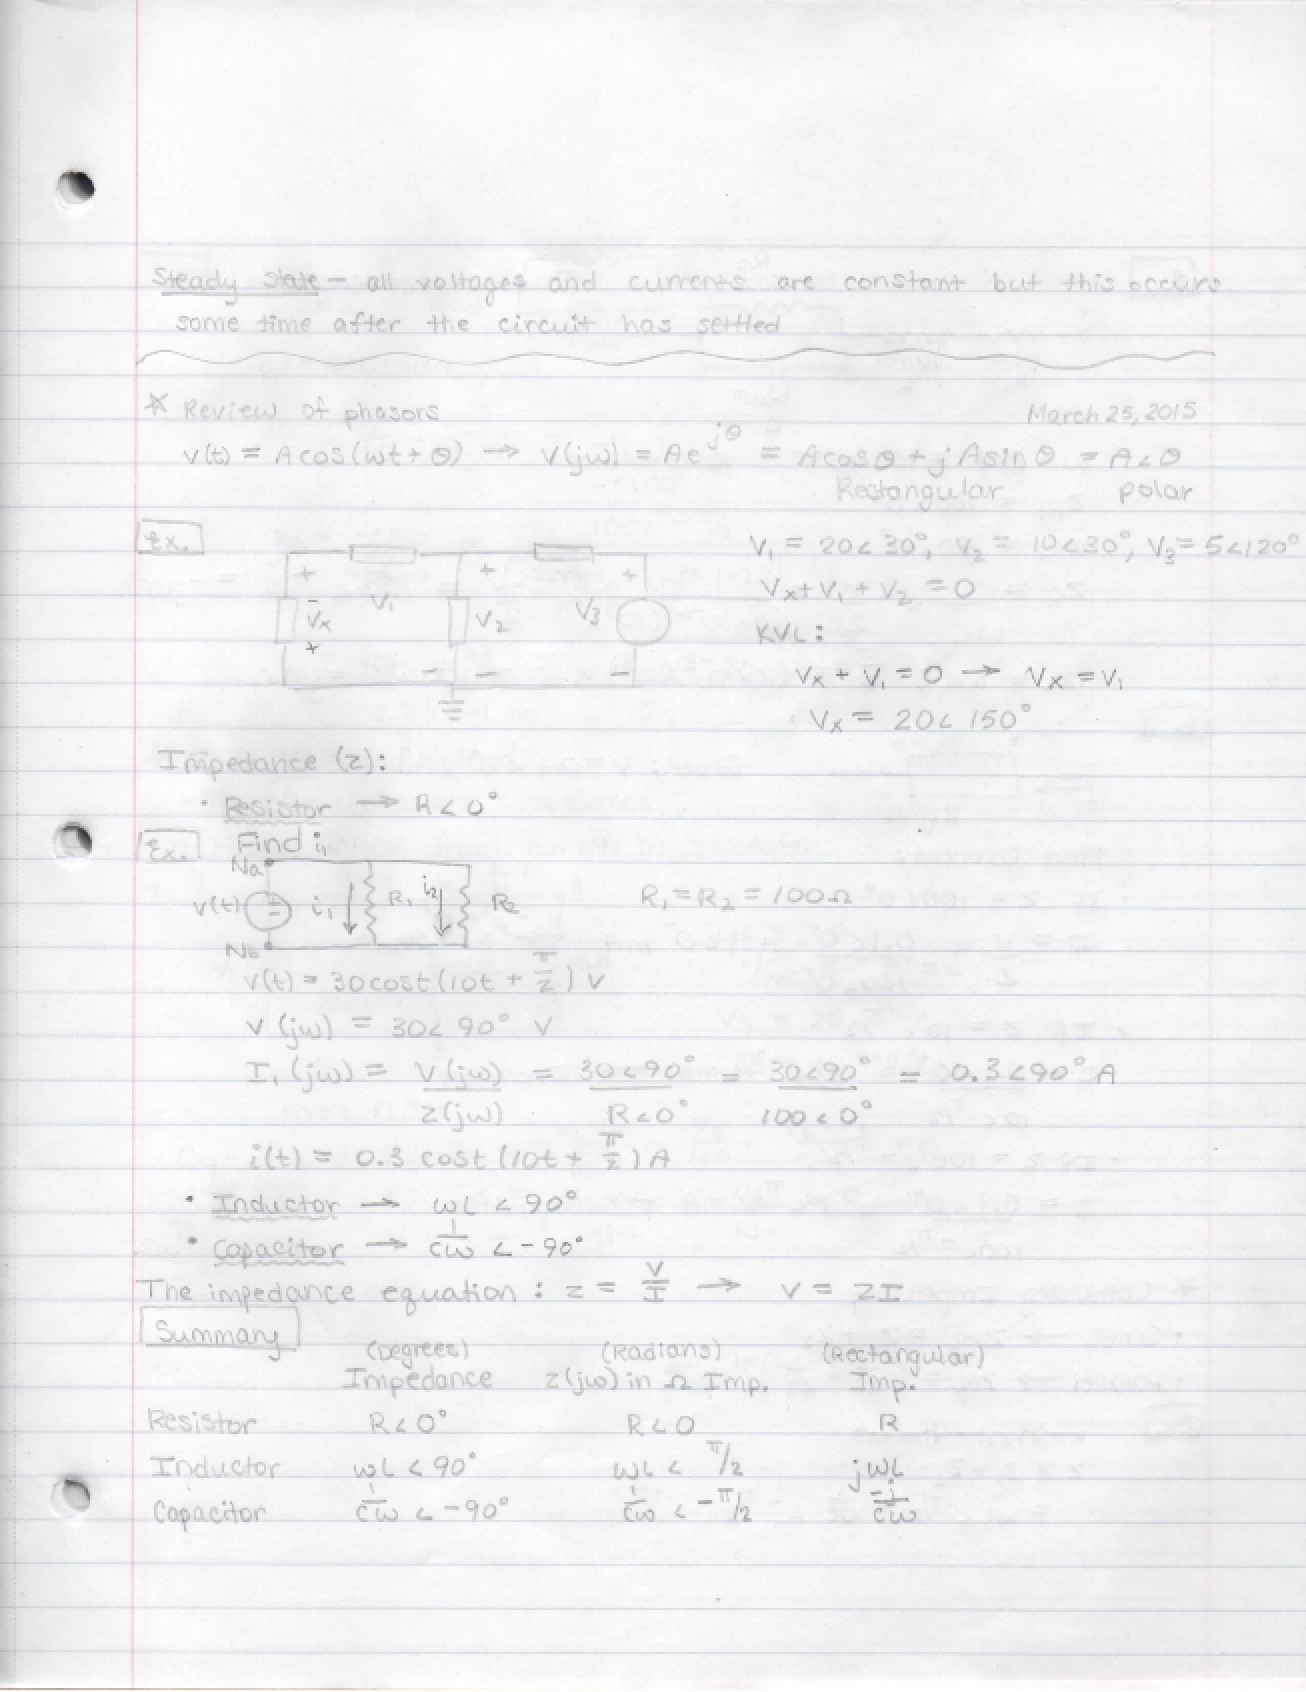 Steady State - all voltages and currents are constant but this occurs
some time after the circuit has settled
* Review of phasors
March 25, 2015
v(t) = A cos(ωt + θ) → V(jω) = Ae^jθ = Acosθ + j Asinθ = A∠θ
Rectangular polar
Ex.
V₁ = 20∠30°, V₂ = 10∠30°, V₃ = 5∠120°
+ V₁ + +
- Vx + V₂ V₃
- - -
Vx + V₁ + V₂ = 0
KVL:
Vx + V₁ = 0 → Vx = V₁
Vx = 20∠150°
Impedance (z):
• Resistor → R∠0°
Ex. Find i₁
Na
v(t) i₁ R₁ i₂ R₂
R₁ = R₂ = 100Ω
Nb
v(t) = 30cost(10t + π/2) V
V(jω) = 30∠90° V
I₁(jω) = V(jω)/z(jω) = 30∠90°/R∠0° = 30∠90°/100∠0° = 0.3∠90° A
i(t) = 0.3 cost(10t + π/2) A
• Inductor → ωL∠90°
• Capacitor → 1/cω ∠-90°
The impedance equation: z = V/I → V = ZI
Summary
(Degrees) (Radians) (Rectangular)
Impedance z(jω) in Ω Imp. Imp.
Resistor R∠0° R∠0 R
Inductor ωL∠90° ωL∠π/2 jωL
Capacitor 1/cω ∠-90° 1/cω ∠-π/2 -j/cω